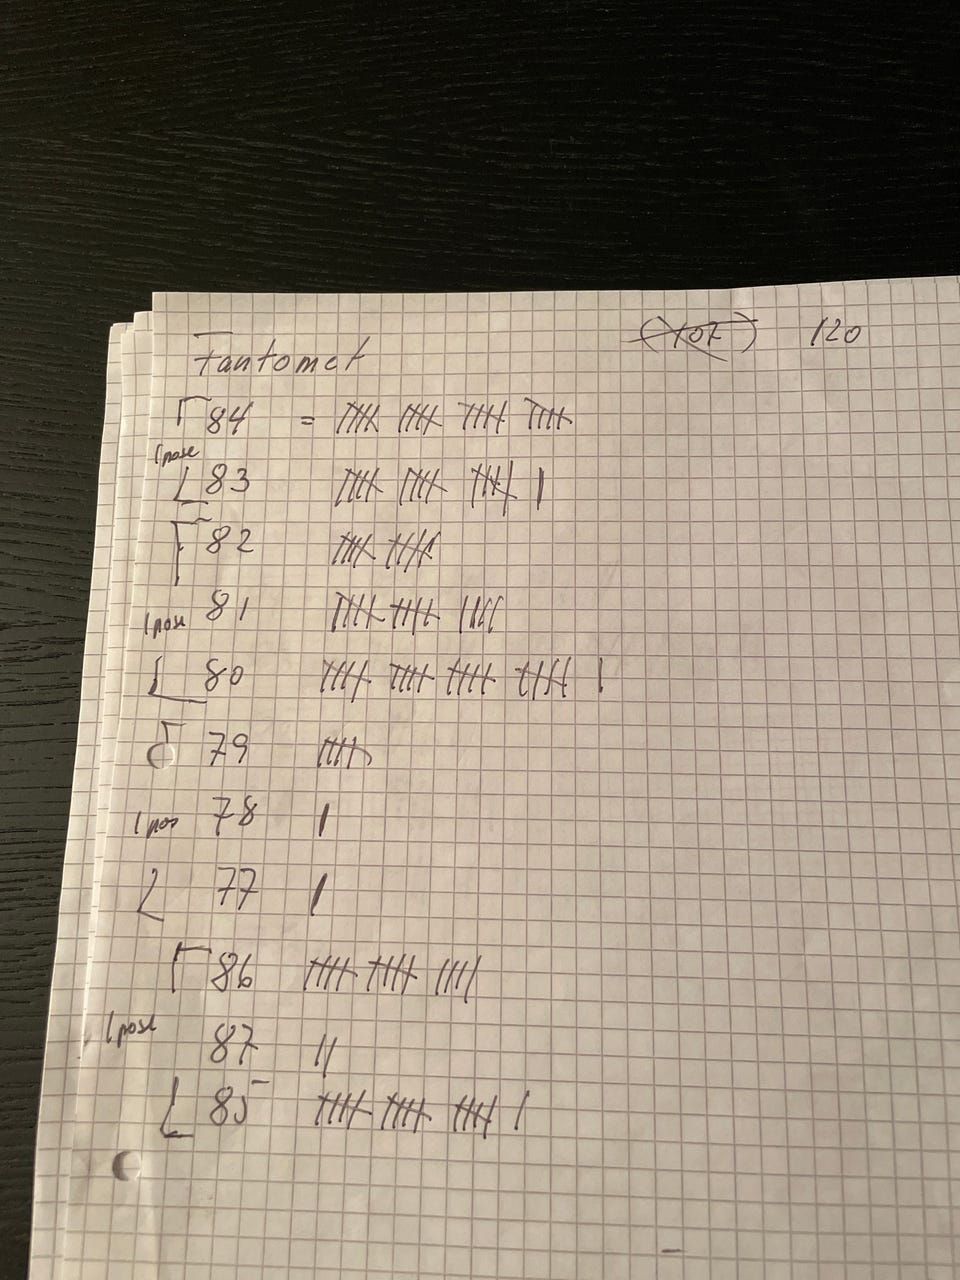 Fantomet (107) 120
84 = 𝍸 𝍸 𝍸 𝍸
1 pose
83 𝍸 𝍸 𝍸 |
82 𝍸 𝍸
81 𝍸 𝍸 ||||
1 pose
80 𝍸 𝍸 𝍸 𝍸 |
79 𝍸
78 |
1 pos
77 |
86 𝍸 𝍸 ||||
1 pose
87 ||
85 𝍸 𝍸 𝍸 |